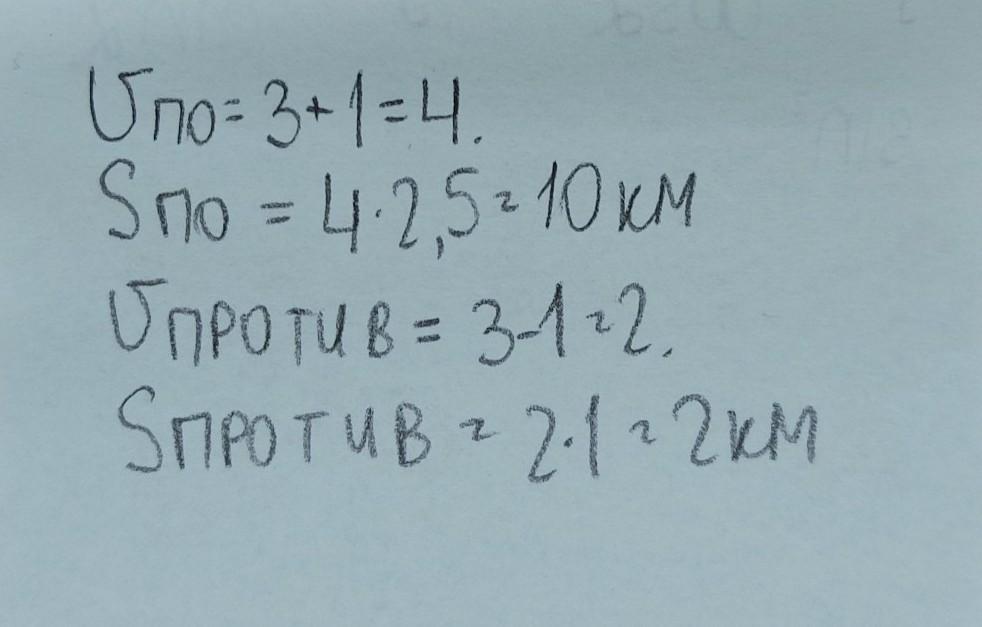 υпо = 3+1=4.
Sпо = 4·2,5=10км
υпротив = 3-1=2.
Sпротив = 2·1=2км